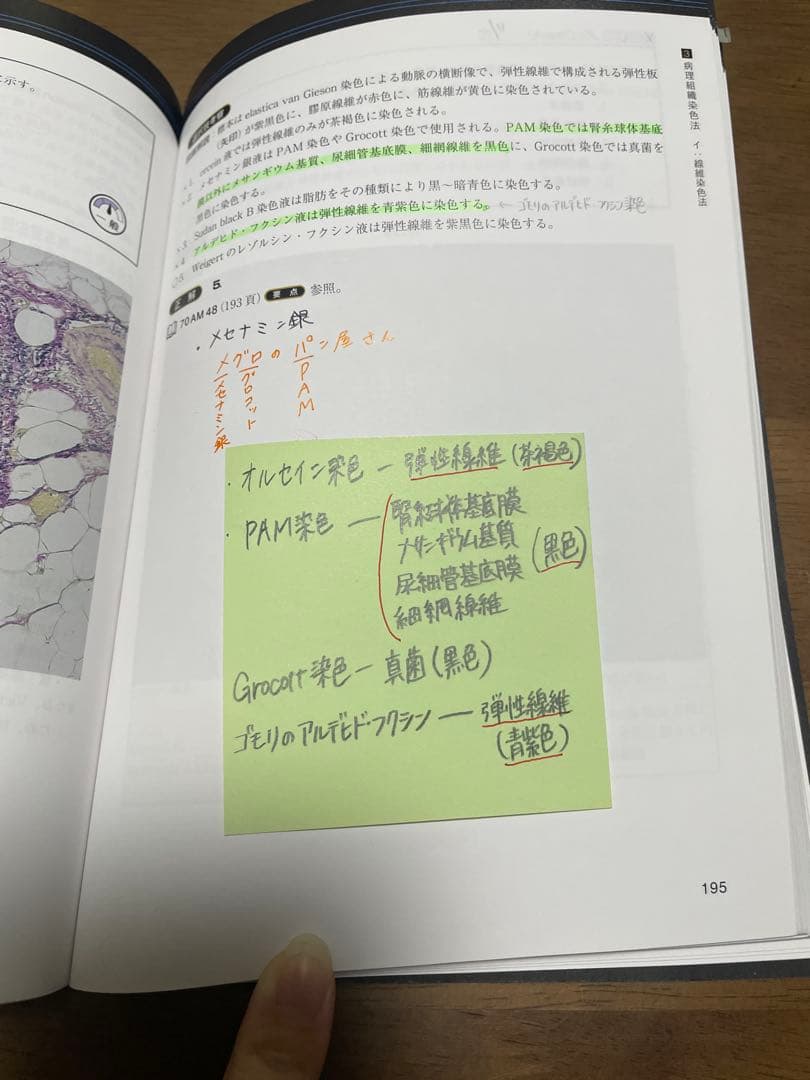 に示す。
一般
3 病理組織染色法 イ:線維染色法
標本は elastica van Gieson 染色による動脈の横断像で、弾性線維で構成される弾性板
(矢印)が紫黒色に、膠原線維が赤色に、筋線維が黄色に染色されている。
×1 orcein 液では弾性線維のみが茶褐色に染色される。
×2 メセナミン銀液は PAM 染色や Grocott 染色で使用される。PAM 染色では腎糸球体基底
膜以外にメサンギウム基質、尿細管基底膜、細網線維を黒色に、Grocott 染色では真菌を
黒色に染色する。
×3 Sudan black B 染色液は脂肪をその種類により黒〜暗青色に染色する。
×4 アルデヒド・フクシン液は弾性線維を青紫色に染色する。 ← ゴモリのアルデヒド・フクシン染色
○5 Weigert のレゾルシン・フクシン液は弾性線維を紫黒色に染色する。
正解 5.
70 AM 48 (193 頁) 要点 参照。
・メセナミン銀
メグロのパン屋さん
メセナミン銀
グロコット
PAM
・オルセイン染色 — 弾性線維(茶褐色)
・PAM染色 — 腎糸球体基底膜
メサンギウム基質
尿細管基底膜
細網線維
(黒色)
Grocott染色 — 真菌(黒色)
ゴモリのアルデヒド・フクシン — 弾性線維
(青紫色)
195